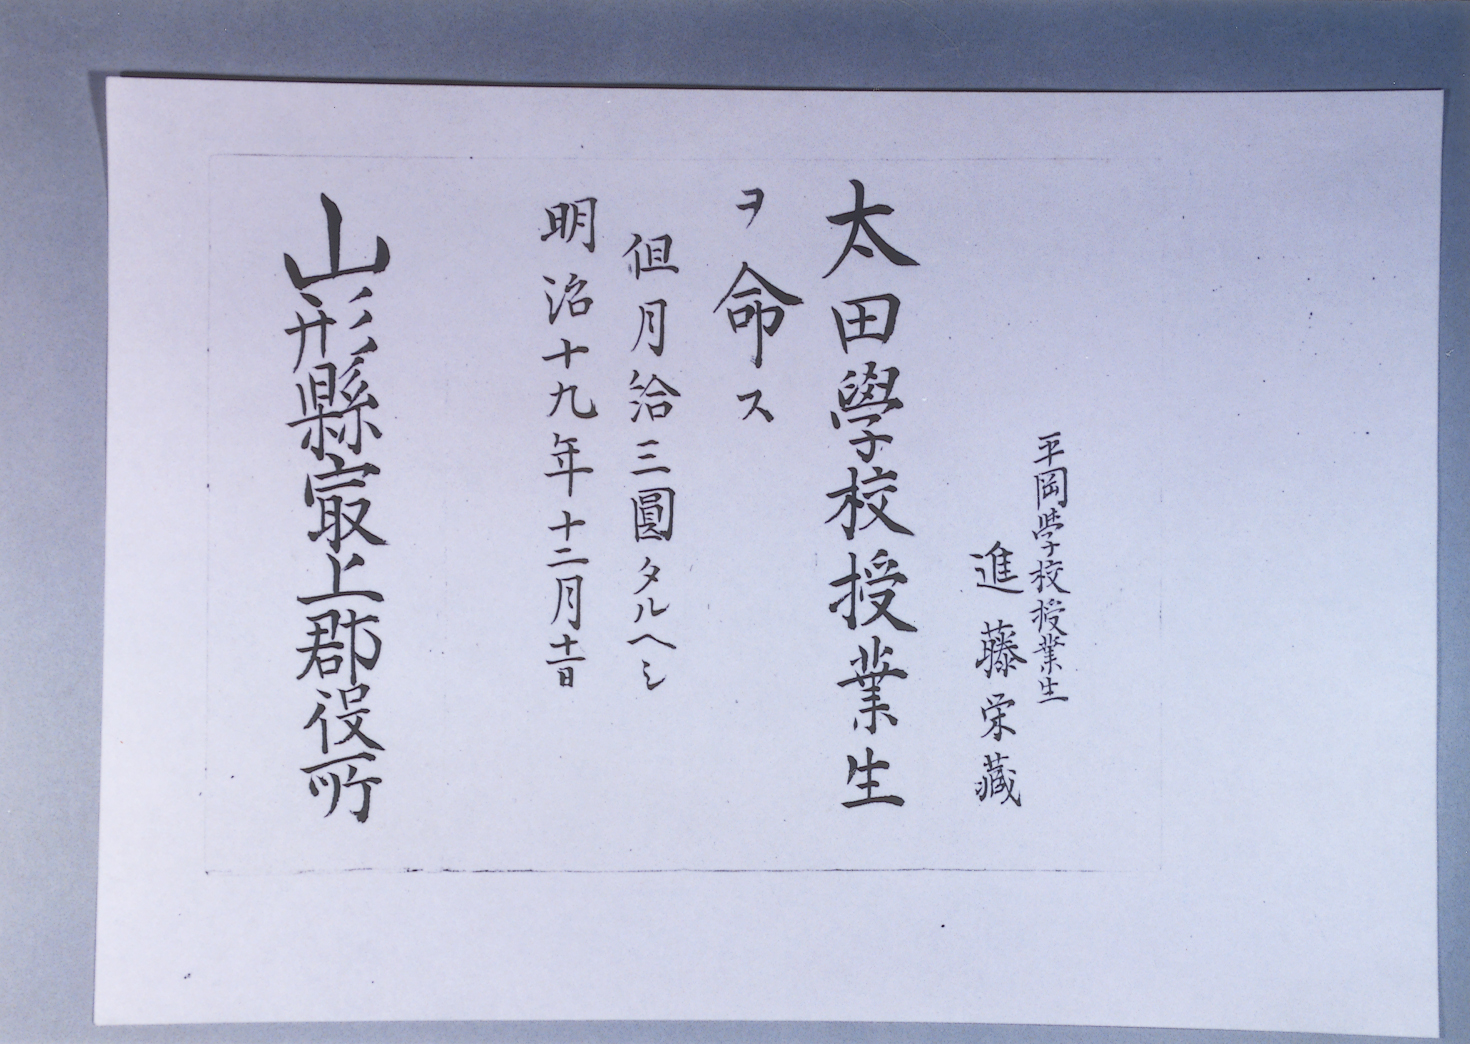 平岡学校授業生
進藤栄藏
太田學校授業生
ヲ命ス
但月給三圓タルヘシ
明治十九年十二月十一日
山形縣㝡上郡役所